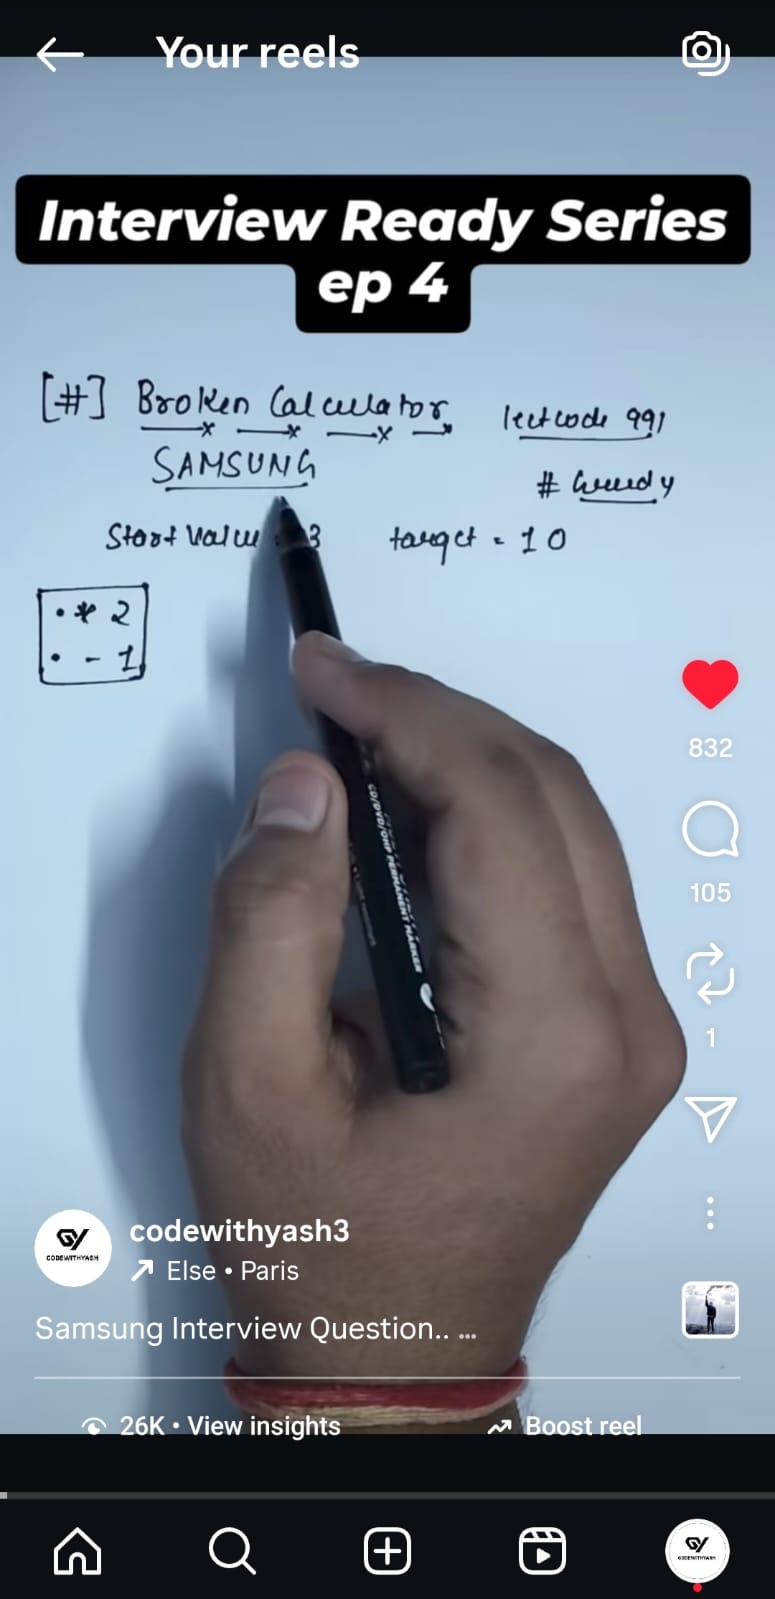 Your reels
Interview Ready Series
ep 4
[#] Broken Calculator leetcode 991
SAMSUNG # Greedy
Start Value 3 target = 10
• * 2
• - 1
CD/DVD/OHP PERMANENT MARKER
832
105
1
GY
CODEWITHYASH
codewithyash3
Else • Paris
Samsung Interview Question.. ...
26K • View insights Boost reel
GY
CODEWITHYASH